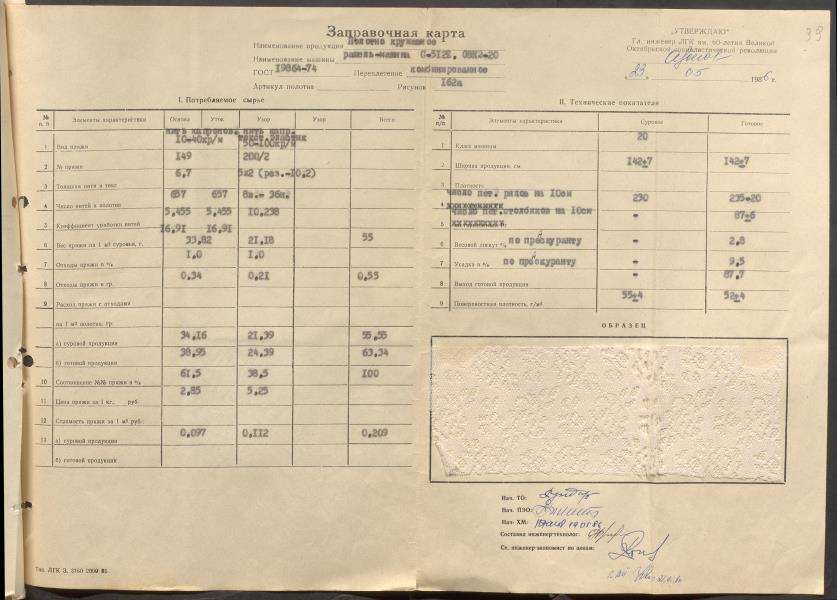 39
Заправочная карта
Наименование продукции Полотно кружевное
Наименование машины рашель-машина С-5122, ОВК2-20
ГОСТ 19864-74 Переплетение комбинированное
Артикул полотна Рисунок 162а
„УТВЕРЖДАЮ"
Гл. инженер ЛГК им. 60-летия Великой
Октябрьской социалистической революции
„23" 05 1986 г.
I. Потребляемое сырье
№ п. п. Элементы характеристики Основа Уток Узор Узор Всего
1 Вид пряжи нить капронов. 10-40кр/м нить капр. текст. эластик 50-100кр/м
2 № пряжи 149 200/2
3 Толщина нити в текс 6,7 5х2 (раз.-10,2)
4 Число нитей в полотне 657 657 8н.- 36н.
5 Коэффициент уработки нитей 5,455 5,455 10,238
16,91 16,91
6 Вес пряжи на 1 м² суровья, г. 33,82 21,18 55
7 Отходы пряжи в % 1,0 1,0
8 Отходы пряжи в гр. 0,34 0,21 0,55
9 Расход пряжи с отходами
на 1 м² полотна, гр.
а) суровой продукции 34,16 21,39 55,55
б) готовой продукции 38,95 24,39 63,34
10 Соотношение №№ пряжи в % 61,5 38,5 100
11 Цена пряжи за 1 кг., руб. 2,85 5,25
12 Стоимость пряжи за 1 м² руб.:
13 а) суровой продукции 0,097 0,112 0,209
б) готовой продукции
II. Технические показатели
№ п/п Элементы характеристики Суровье Готовое
1 Класс машины 20
2 Ширина продукции, см 142±7 142±7
3 Плотность
4 число пет. рядов на 10см 230 235-20
5 число пет.столбиков на 10см - 87±6
6 Весовой лоскут % по прейскуранту - 2,8
7 Усадка в % по прейскуранту - 9,5
8 Выход готовой продукции - 87,7
9 Поверхностная плотность, г/м² 55±4 52±4
ОБРАЗЕЦ
Нач. ТО:
Нач. ПЭО:
Нач. ХМ:
Составила инженер-технолог:
Ст. инженер-экономист по ценам:
Тип. ЛГК З. 3160 2000 85